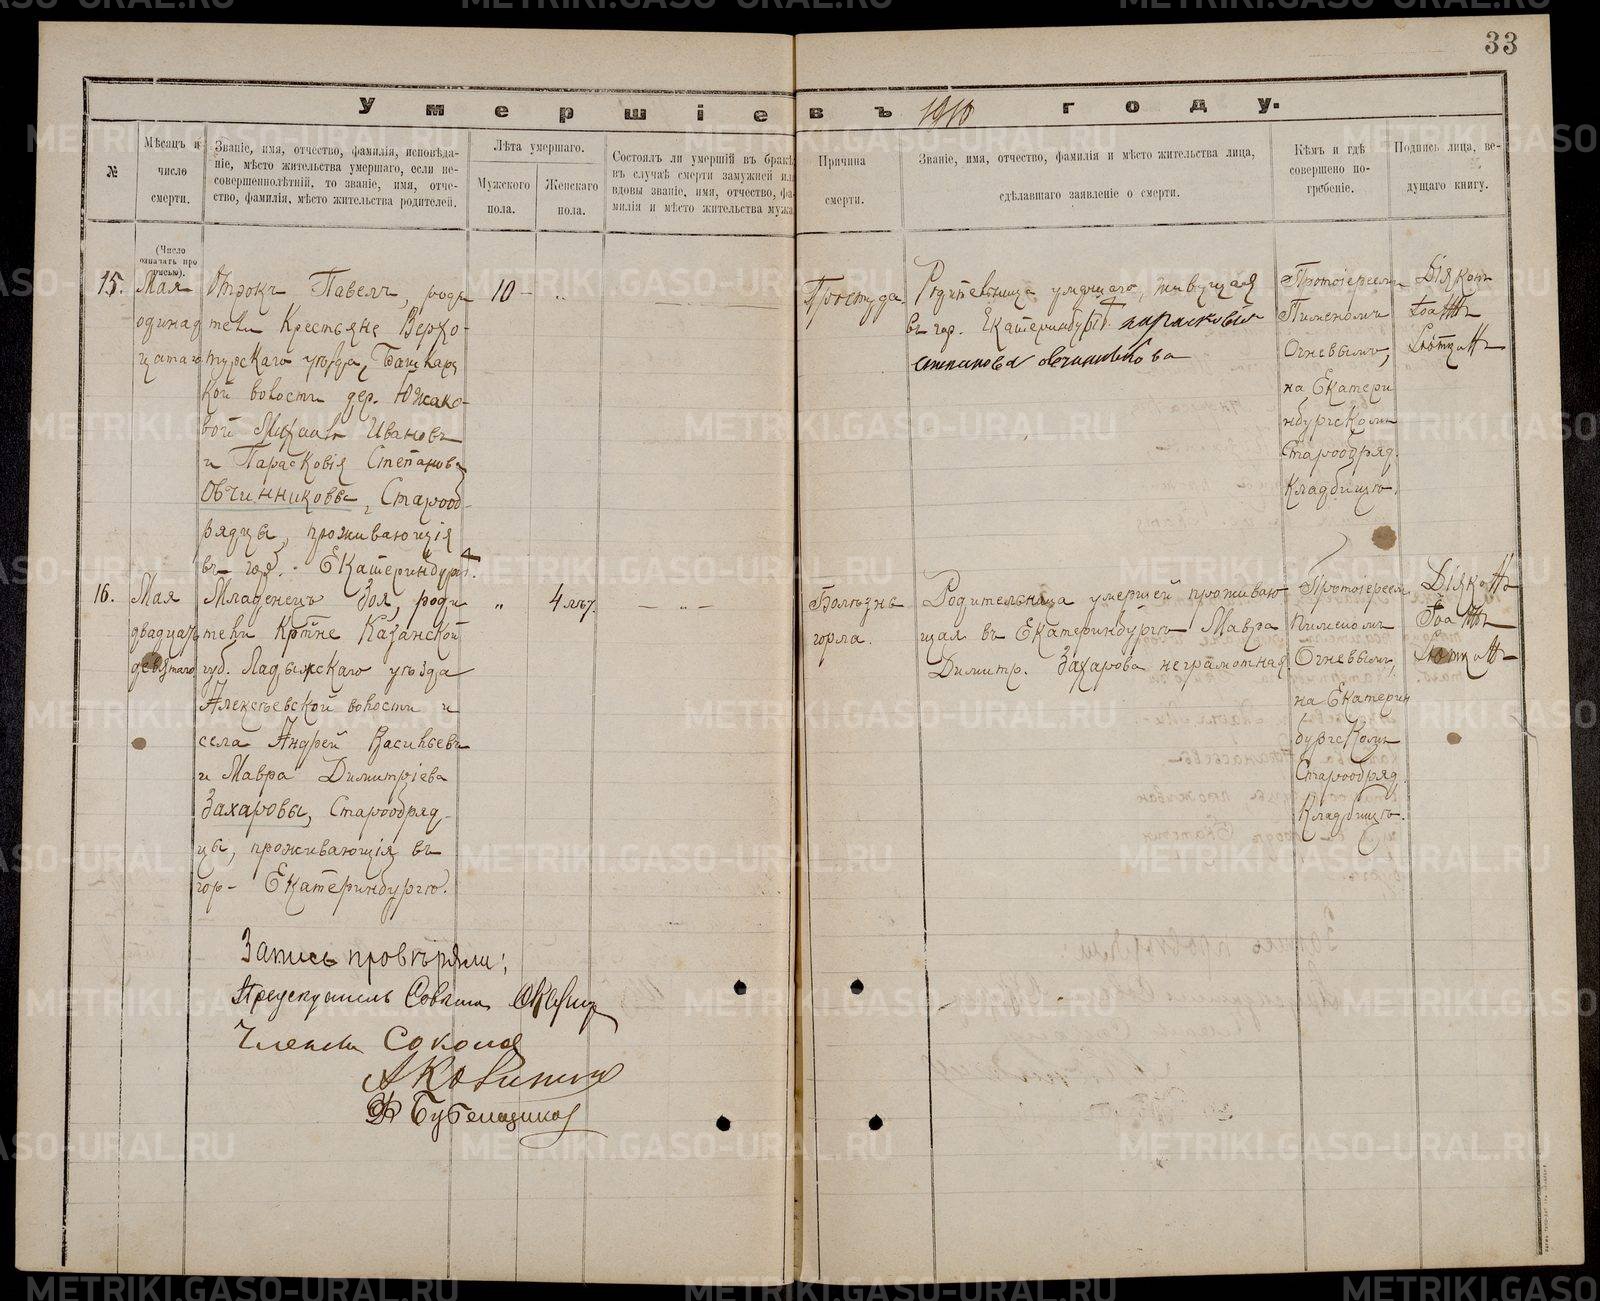 33
Умершіе въ 1910 году.
№
Мѣсяцъ и
число
смерти.
Званіе, имя, отчество, фамилія, исповѣда-
ніе, мѣсто жительства умершаго, если не-
совершеннолѣтній, то званіе, имя, отче-
ство, фамилія, мѣсто жительства родителей.
Лѣта умершаго.
Мужского
пола.
Женскаго
пола.
Состоялъ ли умершій въ бракѣ,
въ случаѣ смерти замужней или
вдовы званіе, имя, отчество, фа-
милія и мѣсто жительства мужа
Причина
смерти.
Званіе, имя, отчество, фамилія и мѣсто жительства лица,
сдѣлавшаго заявленіе о смерти.
Кѣмъ и гдѣ
совершено по-
гребеніе.
Подпись лица, ве-
дущаго книгу.
(Число
означать про
писью).
15.
Мая
одинад
цатаго
Отрокъ Павелъ, роди
тели Крестьяне Верхо-
турскаго уѣзда, Башкарс
кой волости дер. Южако-
вой Михаилъ Ивановъ
и Парасковія Степанова
Овчинниковы, Старооб-
рядцы, проживающія
въ гор. Екатеринбургѣ.
10 - „
Простуда.
Родительница умершаго, живущая
въ гор. Екатеринбургѣ парасковья
степанова овчиникова
Протоіереемъ
Пименомъ
Огневымъ,
на Екатери
нбургскомъ
Старообряд.
Кладбищѣ.
Діяконъ
Іоаннъ
16.
Мая
двадцать
девятаго
Младенецъ Зоя, роди
тели Кр-тне Казанской
губ. Ладыжскаго уѣзда
Алексѣевской волости и
села Андрей Васильевъ
и Мавра Димитріева
Захаровы, Старообряд-
цы, проживающія въ
гор- Екатеринбургѣ.
„ 4 лѣт.
— „ —
Болѣзнь
горла.
Родительница умершей проживаю
щая въ Екатеринбургѣ Мавра
Димитр. Захарова неграмотная.
Протоіереемъ
Пименомъ
Огневымъ,
на Екатерин
бургскомъ
Старообряд.
Кладбищѣ.
Діяконъ
Іоаннъ
Запись провѣряли:
Предсѣдатель Совѣта
Члены Соколов
Ф Бубенщиков
METRIKI.GASO-URAL.RU